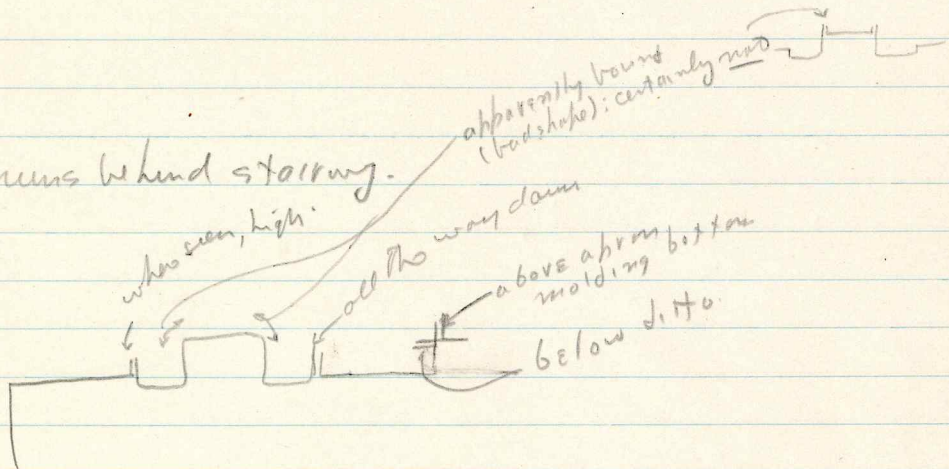 apparently bound
(bad shape); certainly not
behind stairway.
when seen, high.
all the way down
above apron
molding bottom
below ditto